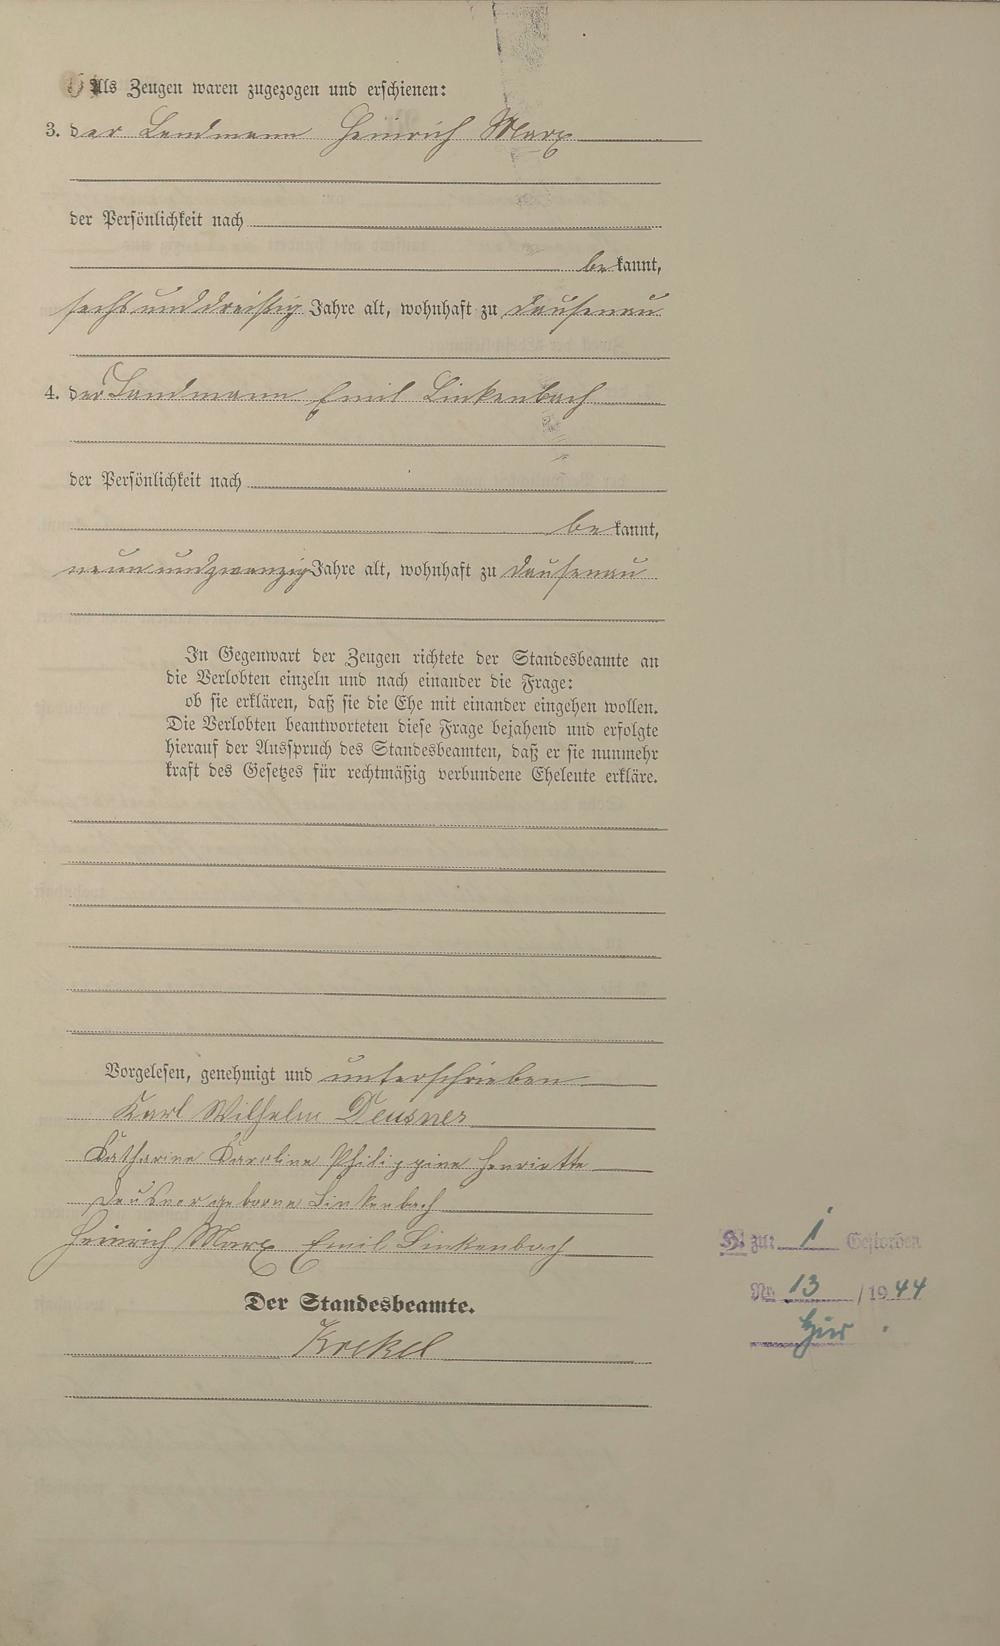 Als Zeugen waren zugezogen und erschienen:
3. der Landmann Heinrich Marx
der Persönlichkeit nach
bekannt,
sechsunddreißig Jahre alt, wohnhaft zu Dausenau
4. der Landmann Emil Linkenbach
der Persönlichkeit nach
bekannt,
neunundzwanzig Jahre alt, wohnhaft zu Dausenau
In Gegenwart der Zeugen richtete der Standesbeamte an
die Verlobten einzeln und nach einander die Frage:
ob sie erklären, daß sie die Ehe mit einander eingehen wollen.
Die Verlobten beantworteten diese Frage bejahend und erfolgte
hierauf der Ausspruch des Standesbeamten, daß er sie nunmehr
kraft des Gesetzes für rechtmäßig verbundene Eheleute erkläre.
Vorgelesen, genehmigt und unterschrieben
Karl Wilhelm Deusner
Katharine Karoline Philippine Henriette
Deusner geborne Linkenbach
Heinrich Marx Emil Linkenbach
Der Standesbeamte.
Krekel
H. zu: 1 Gestorben
Nr. 13 / 1944